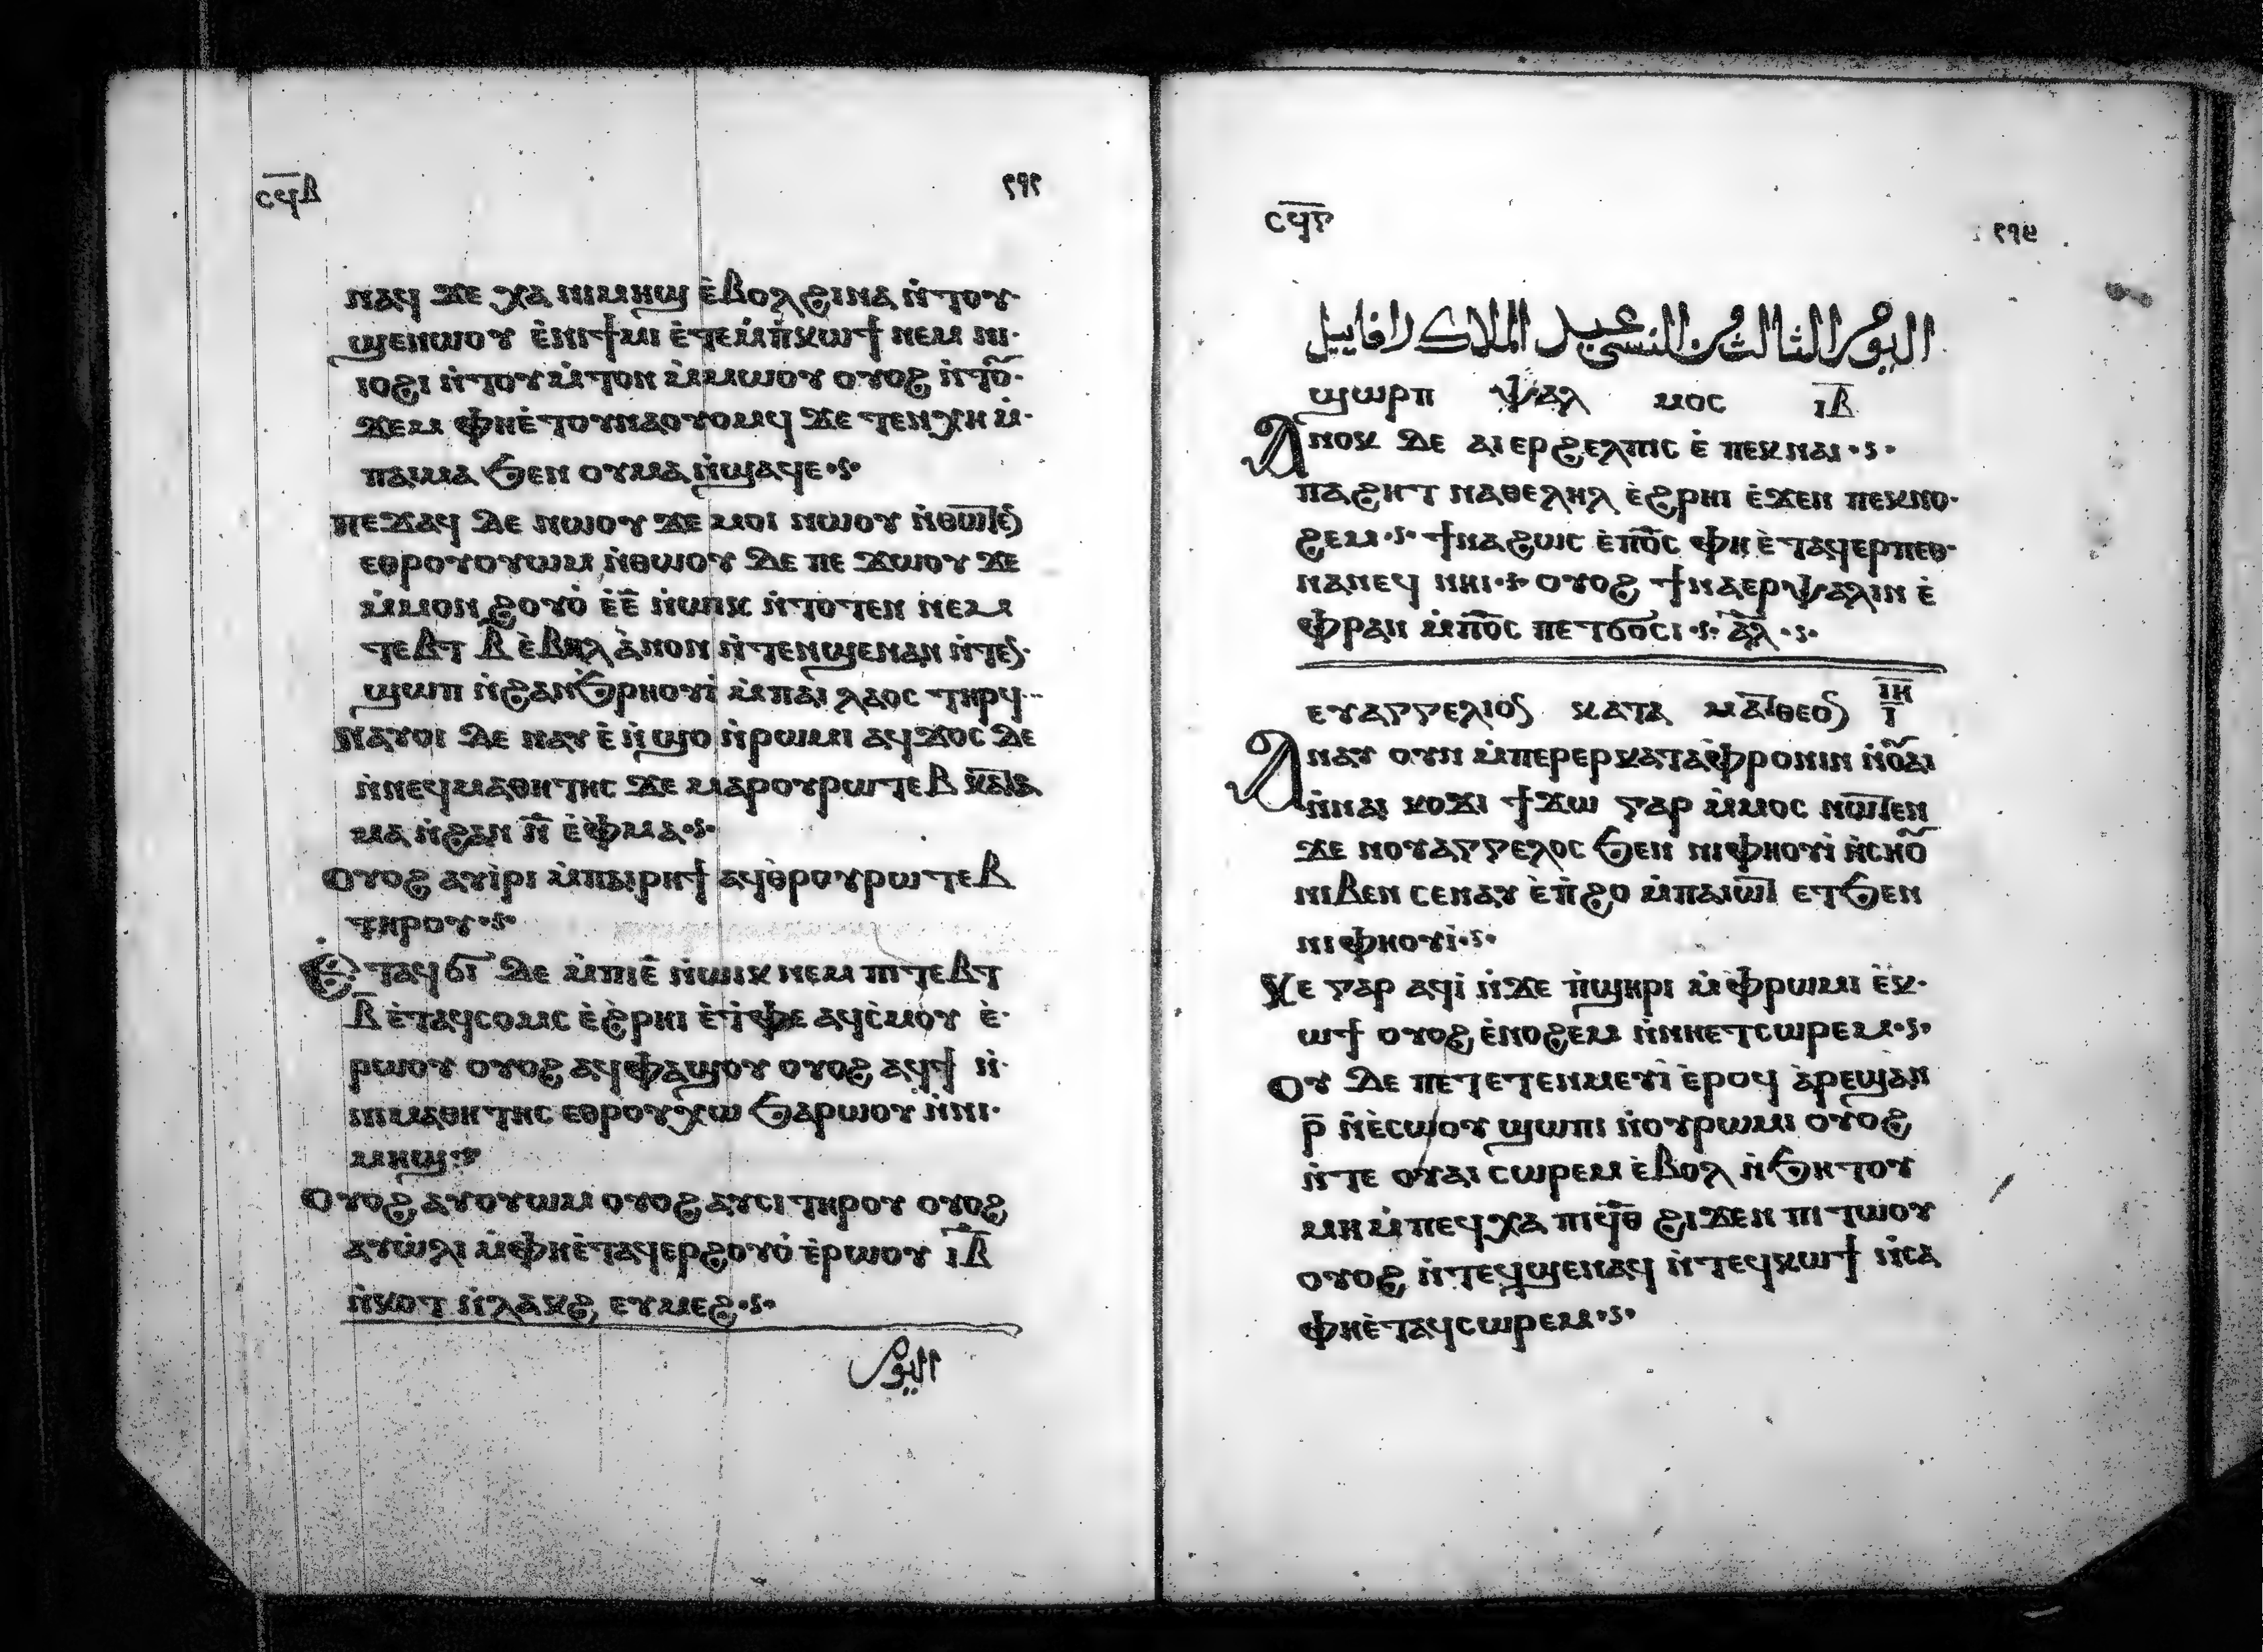 ⲥϥⲃ̅ ٢٩٢
ⲛⲁϥ ϫⲉ ⲭⲁ ⲛⲓⲙⲏϣ ⲉ̀ⲃⲟⲗϩⲓⲛⲁ ⲛ̀ⲧⲟⲩ·
ϣⲉⲛⲱⲟⲩ ⲉ̀ⲛⲓϯⲙⲓ ⲉ̀ⲧⲉⲙ̀ⲡ̀ⲕⲱϯ ⲛⲉⲙ ⲛⲓ·
ⲓⲟϩⲓ ⲛ̀ⲧⲟⲩⲙ̀ⲧⲟⲛ ⲙ̀ⲙⲱⲟⲩ ⲟⲩⲟϩ ⲛ̀ⲧⲟⲩ·
ϫⲉⲙ ⲫⲏⲉ̀ⲧⲟⲩⲛⲁⲟⲩⲟⲙϥ ϫⲉ ⲧⲉⲛⲭⲏ ⲙ̀·
ⲡⲁⲓⲙⲁ ϧⲉⲛ ⲟⲩⲙⲁ ⲛ̀ϣⲁϥⲉ·ⲋ·
ⲡⲉϫⲁϥ ⲇⲉ ⲛⲱⲟⲩ ϫⲉ ⲙⲟⲓ ⲛⲱⲟⲩ ⲛ̀ⲑⲱⲧⲉⲛ
ⲉⲑⲣⲟⲩⲟⲩⲱⲙ ⲛ̀ⲑⲱⲟⲩ ⲇⲉ ⲡⲉ ϫⲱⲟⲩ ϫⲉ
ⲙ̀ⲙⲟⲛ ϩⲟⲩⲟ̀ ⲉ̀ⲉ̅ ⲛ̀ⲱⲓⲕ ⲛ̀ⲧⲟⲧⲉⲛ ⲛⲉⲙ
ⲧⲉⲃⲧ ⲃ̅ ⲉ̀ⲃⲏⲗ ⲁ̀ⲛⲟⲛ ⲛ̀ⲧⲉⲛϣⲉⲛⲁⲛ ⲛ̀ⲧⲉⲛ·
ϣⲱⲡ ⲛ̀ϩⲁⲛϧⲣⲏⲟⲩⲓ̀ ⲙ̀ⲡⲁⲓ ⲗⲁⲟⲥ ⲧⲏⲣϥ··
ⲛⲁⲩⲟⲓ ⲇⲉ ⲛⲁⲩ ⲉ̀ ⲛ̀ϣⲟ ⲛ̀ⲣⲱⲙⲓ ⲁϥϫⲟⲥ ⲇⲉ
ⲛ̀ⲛⲉϥⲙⲁⲑⲏⲧⲏⲥ ϫⲉ ⲙⲁⲣⲟⲩⲣⲱⲧⲉⲃ ⲕⲁⲧⲁ
ⲙⲁ ⲛ̀ϩⲁⲛ ⲛ̅ ⲉ̀ⲫⲙⲁ·ⲋ·
ⲟⲩⲟϩ ⲁⲩⲓ̀ⲣⲓ ⲙ̀ⲡⲁⲓⲣⲏϯ ⲁϥⲑ̀ⲣⲟⲩⲣⲱⲧⲉⲃ
ⲧⲏⲣⲟⲩ·ⲋ·
Ⲉⲧⲁϥϭⲓ ⲇⲉ ⲙ̀ⲡⲓⲉ̅ ⲛ̀ⲱⲓⲕ ⲛⲉⲙ ⲡⲓⲧⲉⲃⲧ
ⲃ̅ ⲉ̀ⲧⲁϥⲥⲟⲙⲥ ⲉ̀ϩ̀ⲣⲏⲓ ⲉ̀ⲧ̀ⲫⲉ ⲁϥⲥ̀ⲙⲟⲩ ⲉ̀·
ⲣⲱⲟⲩ ⲟⲩⲟϩ ⲁϥⲫⲁϣⲟⲩ ⲟⲩⲟϩ ⲁϥϯ ⲛ̀·
ⲛⲓⲙⲁⲑⲏⲧⲏⲥ ⲉⲑⲣⲟⲩⲭⲱ ϧⲁⲣⲱⲟⲩ ⲛ̀ⲛⲓ·
ⲙⲏϣ·ⲋ·
Ⲟⲩⲟϩ ⲁⲩⲟⲩⲱⲙ ⲟⲩⲟϩ ⲁⲩⲥⲓ ⲧⲏⲣⲟⲩ ⲟⲩⲟϩ
ⲁⲩⲱ̀ⲗⲓ ⲙ̀ⲫⲏⲉ̀ⲧⲁϥⲉⲣϩⲟⲩⲟ̀ ⲉ̀ⲣⲱⲟⲩ ⲓⲃ̅
ⲛ̀ⲕⲟⲧ ⲛ̀ⲗⲁⲕϩ ⲉⲩⲙⲉϩ·ⲋ·
اليوم
ⲥϥⲅ̅ ٢٩٣
اليوم الثالث من النسى عيد الملاك رافاييل
ϣⲱⲣⲡ ⲯⲁⲗ ⲙⲟⲥ ⲓⲃ̅
Ⲁⲛⲟⲕ ⲇⲉ ⲁⲓ ⲉⲣϩⲉⲗⲡⲓⲥ ⲉ̀ ⲡⲉⲕⲛⲁⲓ·ⲋ·
ⲡⲁϩⲏⲧ ⲛⲁⲑⲉⲗⲏⲗ ⲉ̀ϩⲣⲏⲓ ⲉ̀ϫⲉⲛ ⲡⲉⲕⲛⲟ·
ϩⲉⲙ·ⲋ· ϯⲛⲁϩⲱⲥ ⲉ̀ⲡⲟ̅ⲥ ⲫⲏ ⲉ̀ⲧⲁϥⲉⲣⲡⲉⲑ·
ⲛⲁⲛⲉϥ ⲛⲏⲓ·ⲋ· ⲟⲩⲟϩ ϯⲛⲁⲉⲣⲯⲁⲗⲓⲛ ⲉ̀
ⲫⲣⲁⲛ ⲙ̀ⲡⲟ̅ⲥ ⲡⲉⲧϭⲟⲥⲓ·ⲋ· ⲁ̅ⲗ·ⲋ·
ⲉⲩⲁⲅⲅⲉⲗⲓⲟⲛ ⲕⲁⲧⲁ ⲙⲁⲧⲑⲉⲟⲛ ⲓⲏ̅ ⲓ̅
Ⲁⲛⲁⲩ ⲟⲩⲛ ⲙ̀ⲡⲉⲣⲉⲣⲕⲁⲧⲁⲫⲣⲟⲛⲓⲛ ⲛ̀ⲟⲩⲁⲓ
ⲛ̀ⲛⲁⲓ ⲕⲟϫⲓ ϯϫⲱ ⲅⲁⲣ ⲙ̀ⲙⲟⲥ ⲛⲱⲧⲉⲛ
ϫⲉ ⲛⲟⲩⲁⲅⲅⲉⲗⲟⲥ ϧⲉⲛ ⲛⲓⲫⲏⲟⲩⲓ̀ ⲛ̀ⲥⲏⲟⲩ
ⲛⲓⲃⲉⲛ ⲥⲉⲛⲁⲩ ⲉ̀ⲡ̀ϩⲟ ⲙ̀ⲡⲁⲓⲱⲧ ⲉⲧϧⲉⲛ
ⲛⲓⲫⲏⲟⲩⲓ̀·ⲋ·
Ϫⲉ ⲅⲁⲣ ⲁϥⲓ̀ ⲛ̀ϫⲉ ⲡ̀ϣⲏⲣⲓ ⲙ̀ⲫⲣⲱⲙⲓ ⲉ̀ⲕ·
ⲱϯ ⲟⲩⲟϩ ⲉ̀ⲛⲟϩⲉⲙ ⲛ̀ⲛⲏⲉⲧⲥⲱⲣⲉⲙ·ⲋ·
Ⲟⲩ ⲇⲉ ⲡⲉⲧⲉⲧⲉⲛⲙⲉⲩⲓ̀ ⲉ̀ⲣⲟϥ ⲁ̀ⲣⲉϣⲁⲛ
ⲣ̅ ⲛ̀ⲉ̀ⲥⲱⲟⲩ ϣⲱⲡⲓ ⲛ̀ⲟⲩⲣⲱⲙⲓ ⲟⲩⲟϩ
ⲛ̀ⲧⲉ ⲟⲩⲁⲓ ⲥⲱⲣⲉⲙ ⲉ̀ⲃⲟⲗ ⲛ̀ϧⲏⲧⲟⲩ
ⲙⲏ ⲙ̀ⲡⲉϥⲭⲁ ⲡⲓϥ̅ⲑ̅ ϩⲓϫⲉⲛ ⲡⲓⲧⲱⲟⲩ
ⲟⲩⲟϩ ⲛ̀ⲧⲉϥϣⲉⲛⲁϥ ⲛ̀ⲧⲉϥⲕⲱϯ ⲛ̀ⲥⲁ
ⲫⲏⲉ̀ⲧⲁϥⲥⲱⲣⲉⲙ·ⲋ·